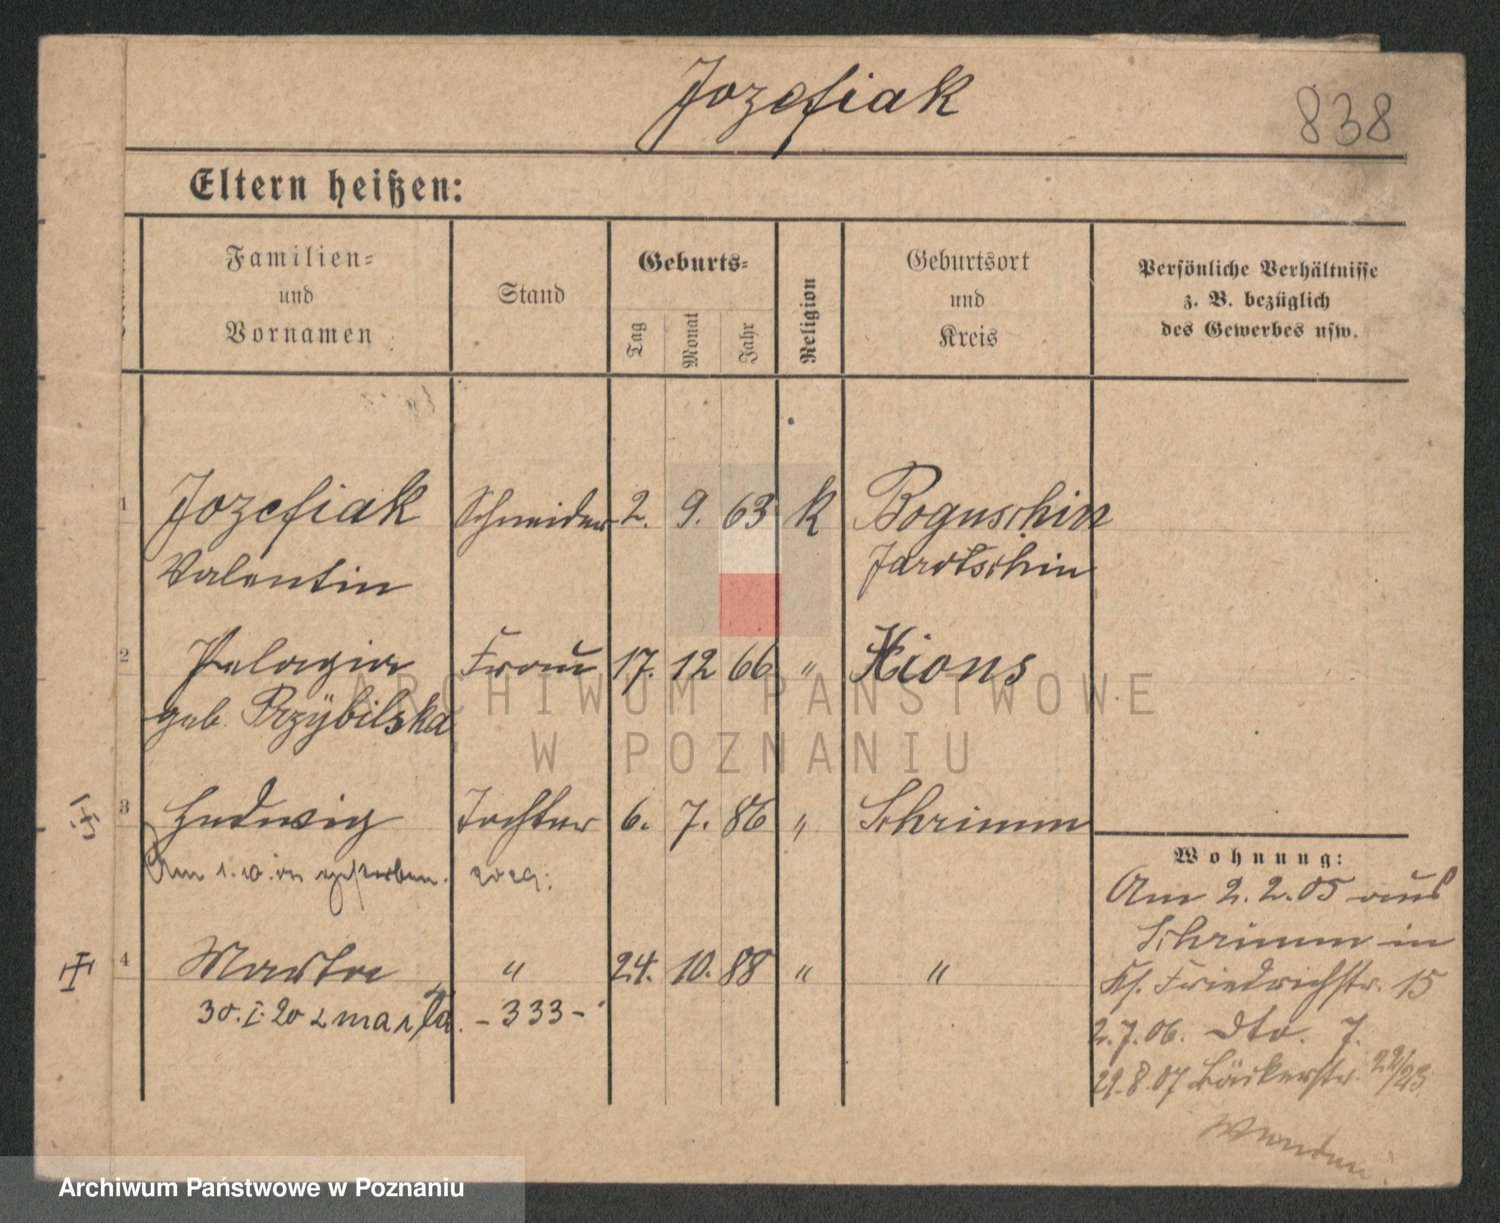 Jozefiak 838
Eltern heißen:
Familien-
und
Vornamen
Stand
Geburts-
Tag Monat Jahr
Religion
Geburtsort
und
Kreis
Persönliche Verhältnisse
z. B. bezüglich
des Gewerbes usw.
1 Jozefiak Schneider 2. 9. 63 k Boguschin
Valentin Jarotschin
2 Pelagia Frau 17. 12 66 " Xions
geb. Przÿbilska
3 Hedwig Tochter 6. 7. 86 " Schrimm
Am 1. gestorben.
4 Martha " 24. 10. 88 " "
30. I. 20 zmarła. - 333 -
Wohnung:
Am 2. 2. 05 aus
Schrimm in
Kl. Friedrichstr. 15
2. 7. 06. dto. 7.
29. 8. 07 Bäckerstr. 22/23
Wenden!
ARCHIWUM PAŃSTWOWE
W POZNANIU
Archiwum Państwowe w Poznaniu